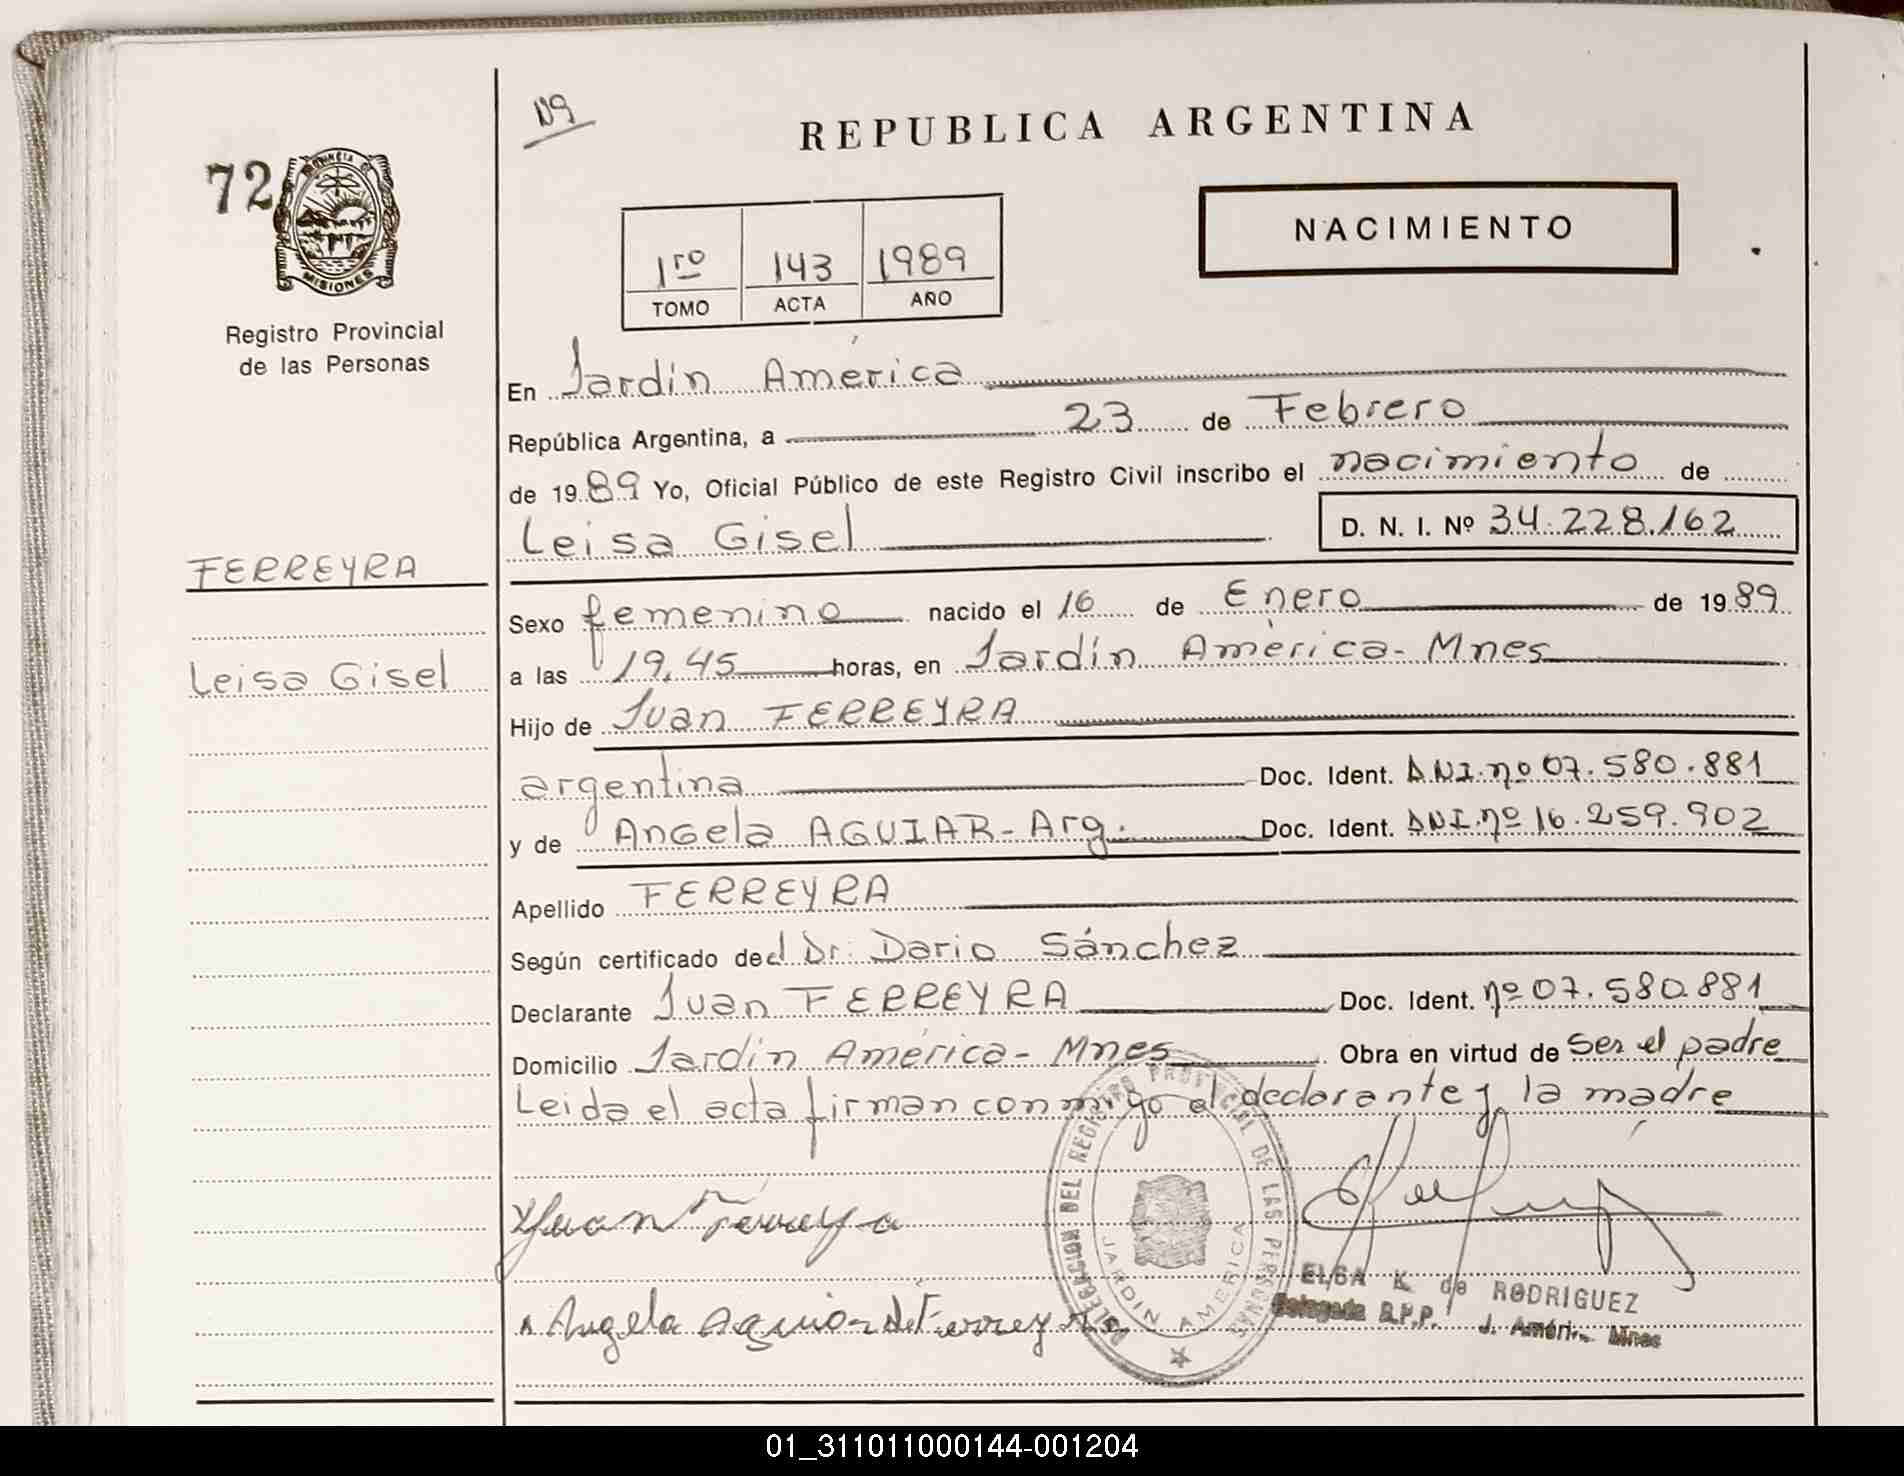 119
REPUBLICA ARGENTINA
72
PROVINCIA DE
MISIONES
NACIMIENTO
1ro 143 1989
TOMO ACTA AÑO
Registro Provincial
de las Personas
En Jardín América
República Argentina, a 23 de Febrero
de 1989 Yo, Oficial Público de este Registro Civil inscribo el nacimiento de
Leisa Gisel D. N. I. Nº 34.228.162
FERREYRA
Sexo femenino nacido el 16 de Enero de 1989
Leisa Gisel
a las 19,45 horas, en Jardín América - Mnes
Hijo de Juan FERREYRA
argentina Doc. Ident. DNI. nº 07.580.881
y de Angela AGUIAR - Arg. Doc. Ident. DNI. nº 16.259.902
Apellido FERREYRA
Según certificado del Dr. Dario Sánchez
Declarante Juan FERREYRA Doc. Ident. nº 07.580.881
Domicilio Jardín América - Mnes Obra en virtud de ser el padre
Leida el acta firman conmigo el declarante y la madre
DELEGACION DEL REGISTRO PROVINCIAL DE LAS PERSONAS
JARDIN AMERICA
Juan Ferreyra
ELSA K. de RODRIGUEZ
Delegada R.P.P. J. Améri. Mnes
Angela Aguiar de Ferreyra
01_311011000144-001204